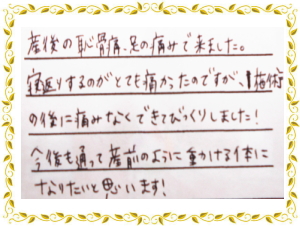 産後の恥骨痛、足の痛みで来ました。
寝返りするのがとても痛かったのですが、1回施術
の後に痛みなくできてびっくりしました!
今後も通って産前のように動ける体に
なりたいと思います!